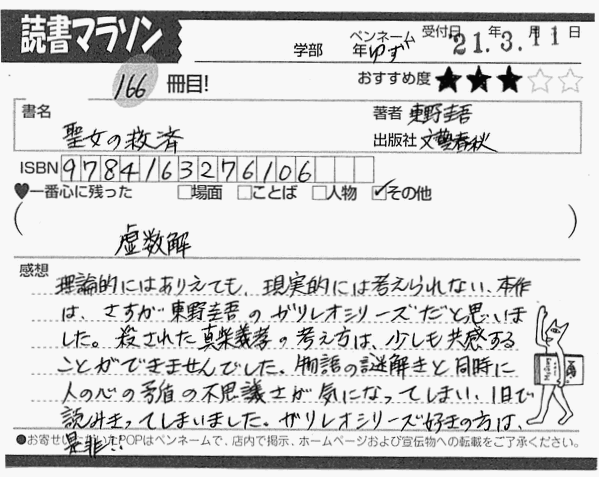 読書マラソン
学部 年 ペンネーム ゆず 受付日 21.年3.月11日
166 冊目!
おすすめ度 ★★★☆☆
書名 聖女の救済
著者 東野圭吾
出版社 文藝春秋
ISBN 9784163276106
♥一番心に残った □場面 □ことば □人物 ☑その他
( 虚数解 )
感想
理論的にはありえても、現実的には考えられない、本作
は、さすが東野圭吾のガリレオシリーズだと思いま
した。殺された真柴義孝の考え方は、少しも共感する
ことができませんでした。物語の謎解きと同時に
人の心の矛盾の不思議さが気になってしまい、1日で
読みきってしまいました。ガリレオシリーズ好きの方は、
是非!!
●お寄せいただいたPOPはペンネームで、店内で掲示、ホームページおよび宣伝物への転載をご了承ください。